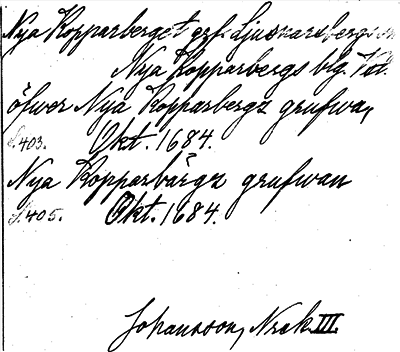 Nya Kopparberget grf. Ljusnarsbergs sn
Nya Kopparbergs blg. Till.
öfwer Nya Kopparbergz grufwa,
S. 403. Okt. 1684.
Nya Kopparbärgz grufwan
S. 405. Okt. 1684.
Johansson, Noraskog III.